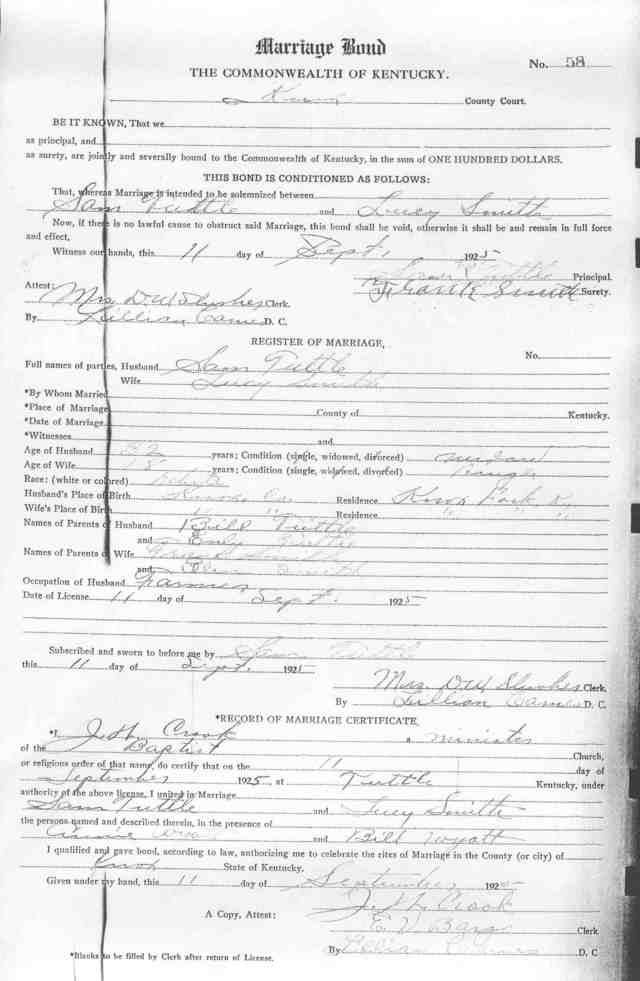 Marriage Bond
No. 58
THE COMMONWEALTH OF KENTUCKY.
Knox County Court.
BE IT KNOWN, That we
as principal, and
as surety, are jointly and severally bound to the Commonwealth of Kentucky, in the sum of ONE HUNDRED DOLLARS.
THIS BOND IS CONDITIONED AS FOLLOWS:
That, whereas Marriage is intended to be solemnized between
Sam Tuttle and Lucy Smith
Now, if there is no lawful cause to obstruct said Marriage, this bond shall be void, otherwise it shall be and remain in full force
and effect,
Witness our hands, this 11 day of Sept. 1925
Tuttle Principal.
Attest: Frank Smith Surety.
Mrs D.W. Slusher Clerk.
By Lillian D. C.
REGISTER OF MARRIAGE,
No.
Full names of parties, Husband Sam Tuttle
Wife Lucy Smith
*By Whom Married
*Place of Marriage County of Kentucky.
*Date of Marriage
*Witnesses and
Age of Husband years; Condition (single, widowed, divorced)
Age of Wife 18 years; Condition (single, widowed, divorced) Single
Race: (white or colored) White
Husband's Place of Birth Knox Co. Residence Knox Ky
Wife's Place of Birth " " Residence " " "
Names of Parents of Husband Bill Tuttle
and Tuttle
Names of Parents of Wife
and Smith
Occupation of Husband Farmer
Date of License 11 day of Sept. 1925
Subscribed and sworn to before me by Sam Tuttle
this 11 day of Sept. 1925
Mrs. D.W. Slusher Clerk.
By Lillian D. C.
*RECORD OF MARRIAGE CERTIFICATE.
*I, J.H. Crook a minister
of the Baptist Church,
or religious order of that name, do certify that on the 11 day of
September 1925, at Tuttle Kentucky, under
authority of the above license, I united in Marriage
Sam Tuttle and Lucy Smith
the persons named and described therein, in the presence of
and Bill Wyatt
I qualified and gave bond, according to law, authorizing me to celebrate the rites of Marriage in the County (or city) of
Knox State of Kentucky.
Given under my hand, this 11 day of September 1925
J.H. Crook
A Copy, Attest: Clerk
By Lillian D. C
*Blanks to be filled by Clerk after return of License.